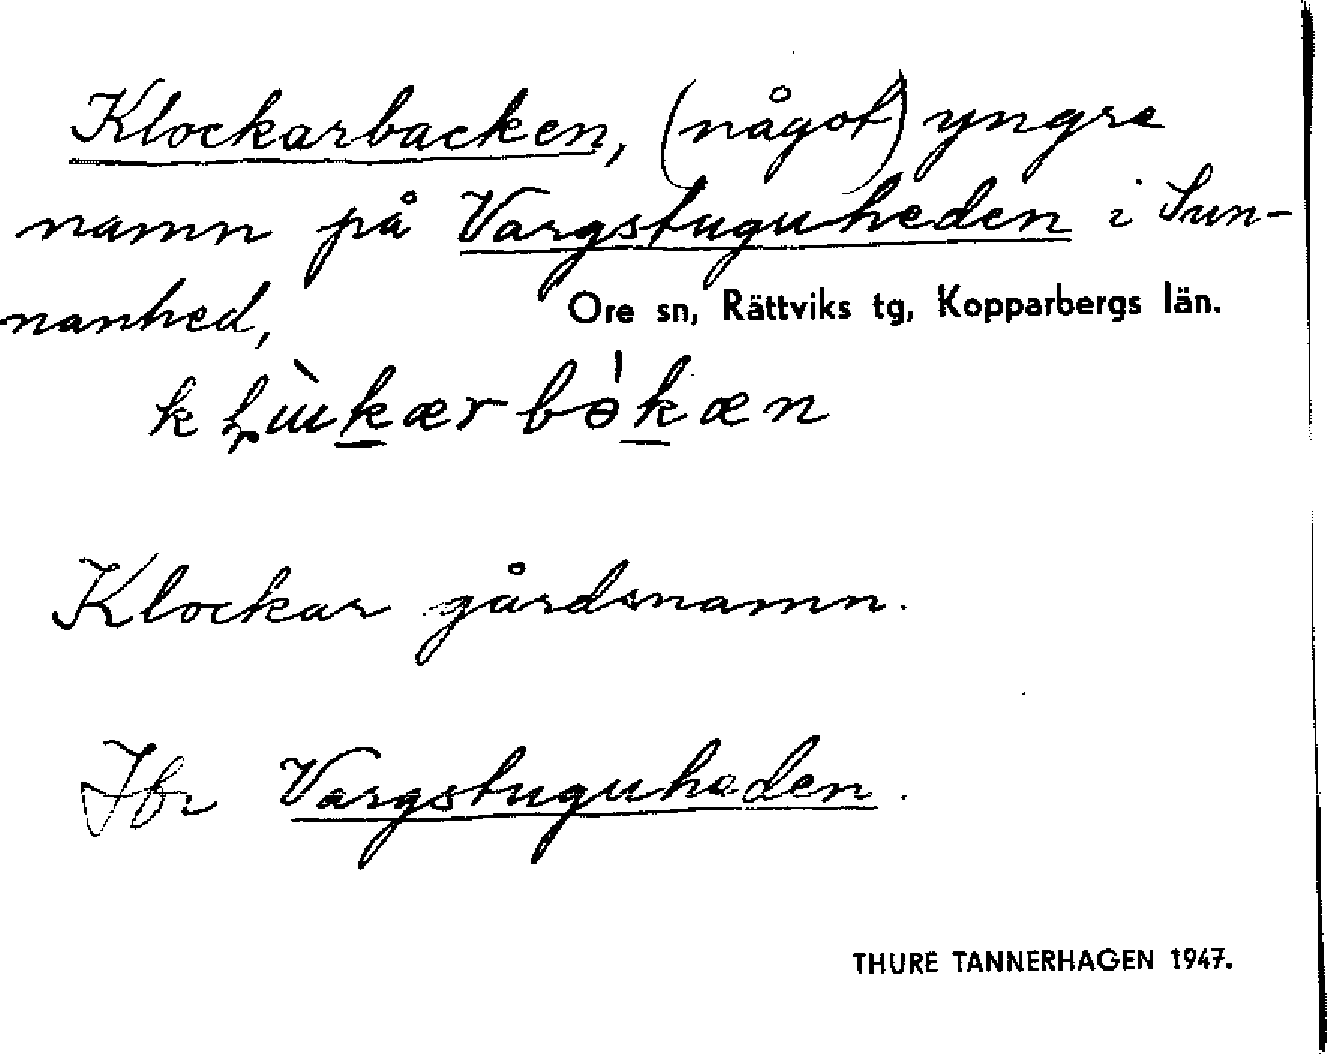 Klockarbacken, (något) yngre
namn på Vargstuguheden i Sun-
nanhed,
Ore sn, Rättviks tg, Kopparbergs län.
Klockar gårdsnamn.
Jfr Vargstuguheden.
THURE TANNERHAGEN 1947.